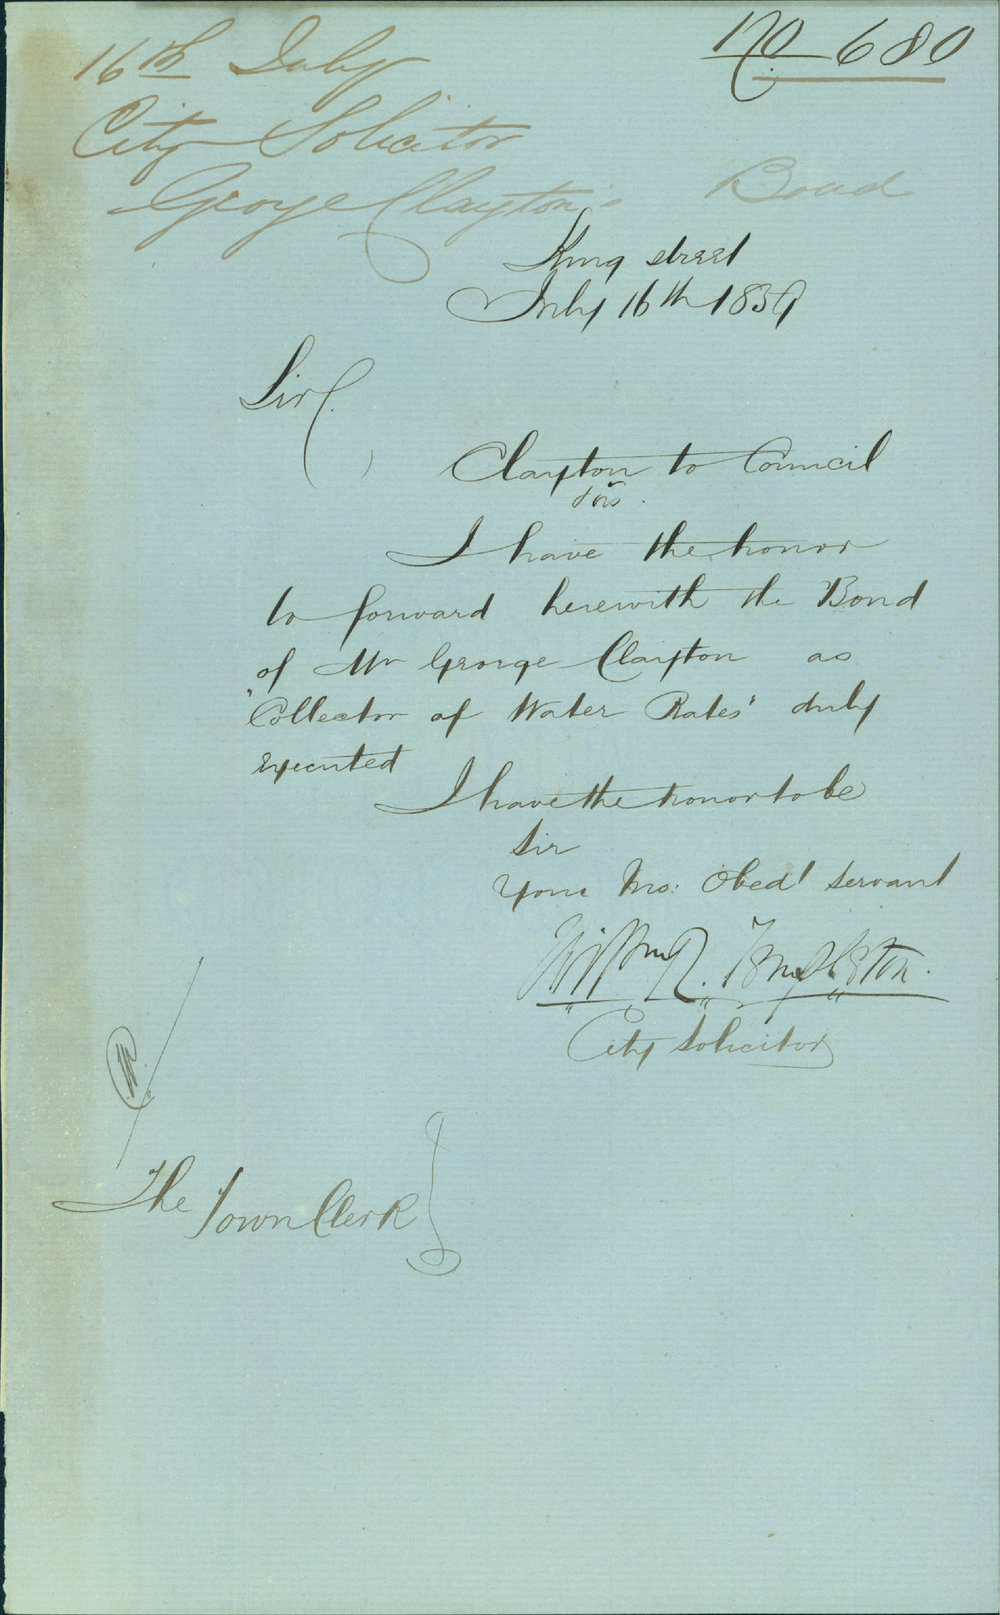 No 680
16th July
City Solicitor
George Clayton's Bond
King street
July 16th 1857
Sir
Clayton to Council
I have the honor
to forward herewith the Bond
of Mr George Clayton as
"Collector of Water Rates" duly
executed
I have the honor to be
Sir
Your Mo: Obedt servant
R. Templeton.
City Solicitor
The Town Clerk